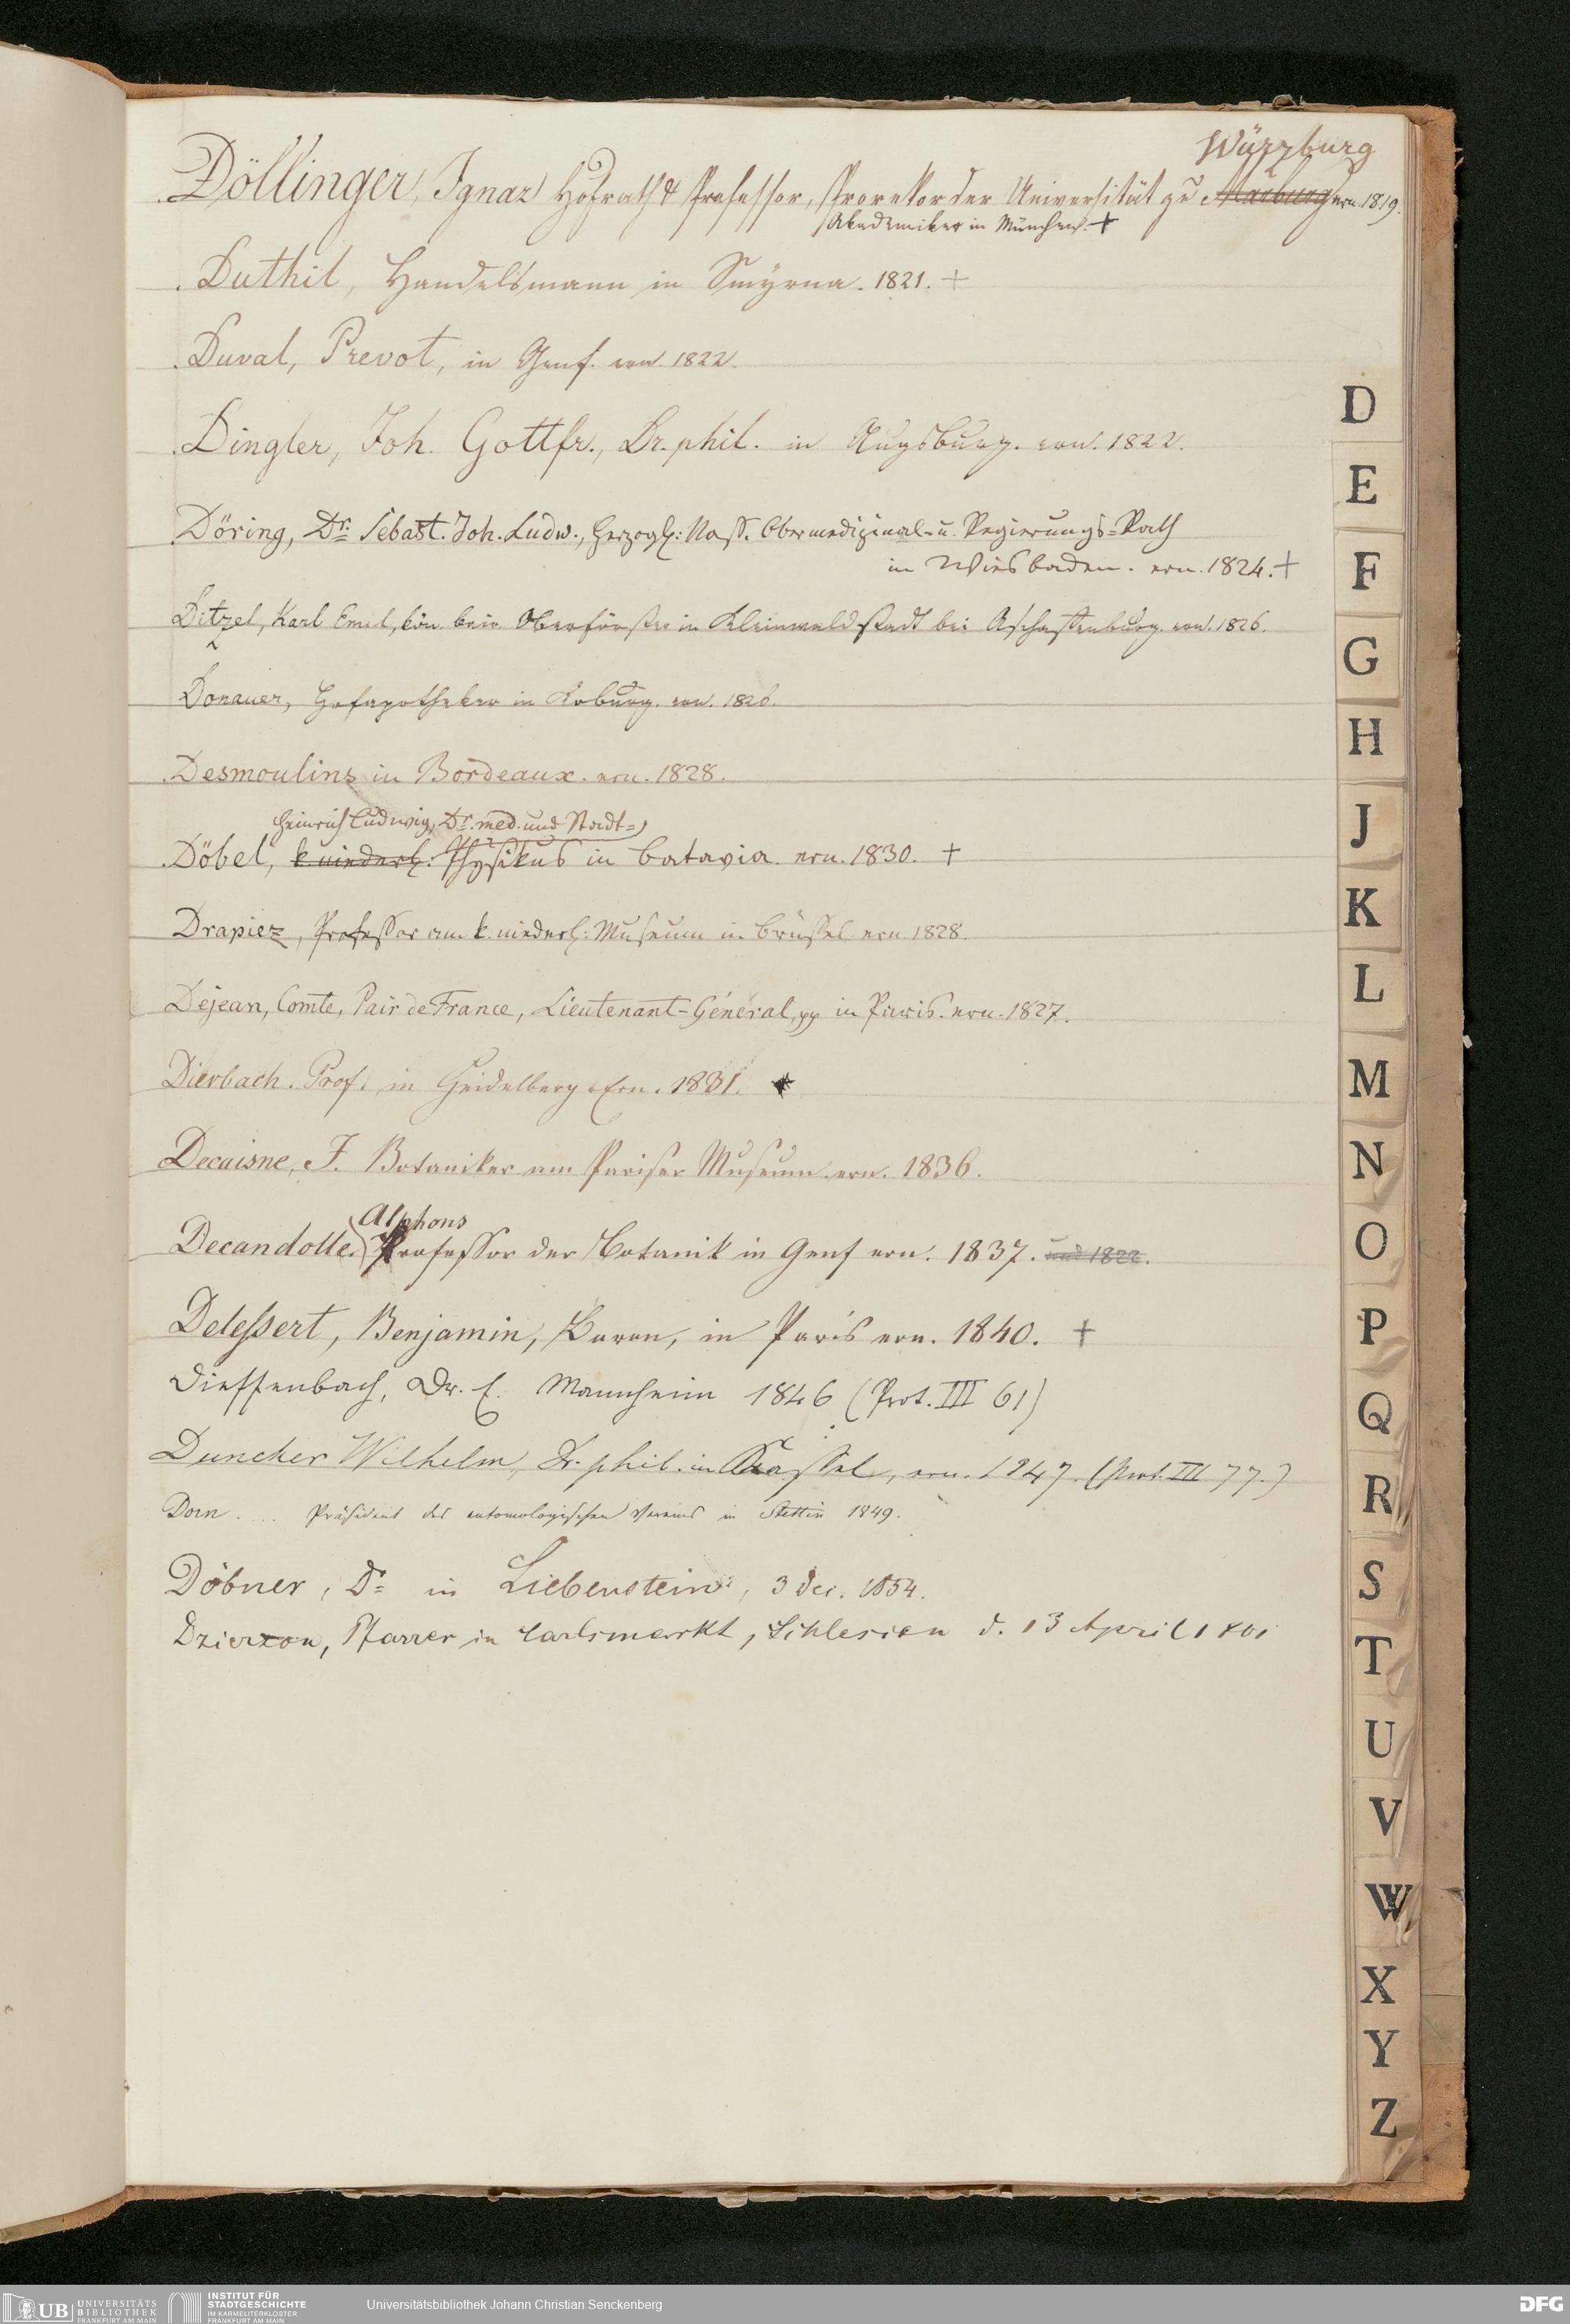 Würzburg
Döllinger, Ignaz Hofrath & Professor, Prorektor der Universität zu Marburg ern. 1819.
Akademiker in München. +
Duthil, Handelsmann in Smÿrna. 1821. +
Duval, Prevot, in Genf. ern. 1822.
Dingler, Joh. Gottfr., Dr. phil. in Augsburg. ern. 1822.
Döring, Dr. Sebast. Joh. Ludw., Herzogl: Nass. Obermedizinal- u. Regierungs=Rath
in Wiesbaden. ern. 1824. +
Ditzel, Karl Emil, kön. bair. Oberförster in Kleinwaldstadt bei Aschaffenburg. ern. 1826.
Donauer, Hofapotheker in Koburg. ern. 1826.
Desmoulins in Bordeaux. ern. 1828.
Heinrich Ludwig, Dr. med. und Stadt=
Döbel, k. niederl: Physikus in Batavia. ern. 1830. +
Drapiez, Professor am k. niederl: Museum in Brüssel ern. 1828.
Dejean, Comte, Pair de France, Lieutenant-Général, pp in Paris. ern. 1827.
Dierbach. Prof. in Heidelberg. Ern. 1831. +
Decaisne, J. Botaniker am Pariser Museum. ern. 1836.
Alphons
Decandolle. Professor der Botanik in Genf ern. 1837. und 1822.
Delessert, Benjamin, Baron, in Paris ern. 1840. +
Dieffenbach, Dr. E. Mannheim 1846 (Prot. III 61)
Duncker Wilhelm, Dr. phil. in Kassel, ern. 1847. (Prot. III 77.)
Dorn .... Präsident des entomologischen Vereins in Stettin 1849.
Döbner, Dr. in Liebenstein, 3 Dec. 1854.
Dzierzon, Pfarrer in Carlsmarkt, Schlesien d. 13 April
D
E
F
G
H
J
K
L
M
N
O
P
Q
R
S
T
U
V
W
X
Y
Z
UB UNIVERSITÄTS
BIBLIOTHEK
FRANKFURT AM MAIN
INSTITUT FÜR
STADTGESCHICHTE
IM KARMELITERKLOSTER
FRANKFURT AM MAIN
Universitätsbibliothek Johann Christian Senckenberg
DFG